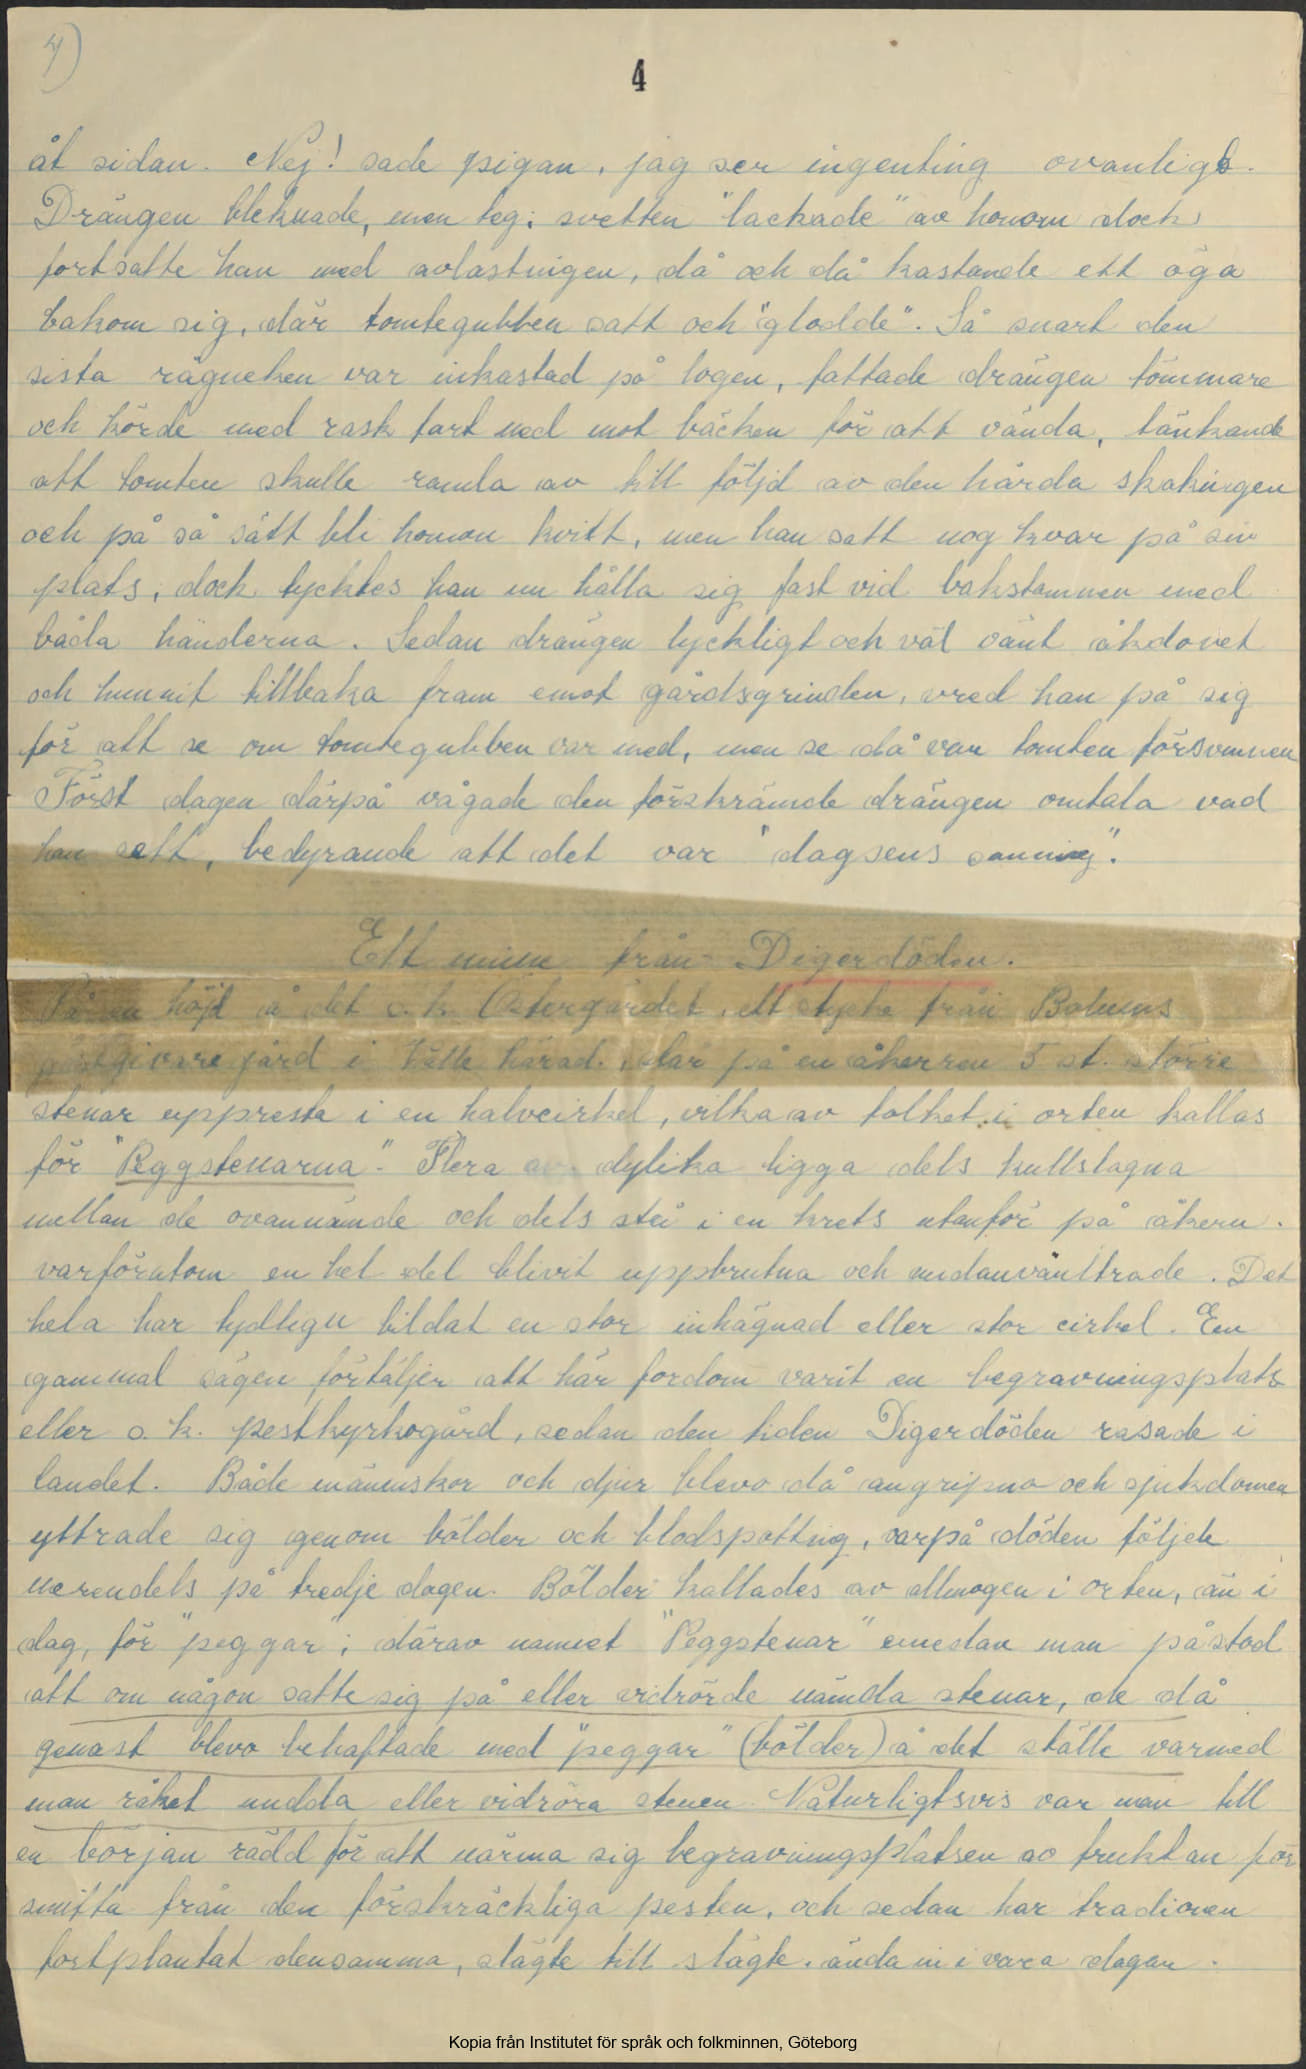 4)
4
åt sidan. Nej! sade pigan, jag ser ingenting ovanligt.
Drängen bleknade, men teg; svetten "lackade" av honom dock
fortsatte han med avlastnigen, då och då kastande ett öga
bakom sig, där tomtegubben satt och "glodde". Så snart den
sista rågneken var inkastad på logen, fattade drängen tömmare
och körde med rask fart ned mot bäcken för att vända, tänkande
att tomten skulle ramla av till följd av den hårda skakningen
och på så sätt bli honom kvitt, men han satt nog kvar på sin
plats; dock tycktes han nu hålla sig fast vid bakstammen med
båda händerna. Sedan drängen lyckligt och väl vänt åkdonet
och hunnit tillbaka fram emot gårdsgrinden, vred han på sig
för att se om tomtegubben var med, men se då var tomten försvunnen
Först dagen därpå vågade den förskrämde drängen omtala vad
han sett, bedyrande att det var "dagsens sanning".
Ett minne från Digerdöden.
På en höjd å det s. k. Östergärdet, ett stycke från Bolums
gästgivaregård i Valle härad. står på en åkerren 5 st. större
stenar uppresta i en halvcirkel, vilka av folket i orten kallas
för "Peggstenarna". Flera av dylika ligga dels kullslagna
mellan de ovannämde och dels stå i en krets utanför på åkern.
varförutom en hel del blivit uppbrutna och undanvältrade. Det
hela har tydligen bildat en stor inhägnad eller stor cirkel. En
gammal sägen förtäljer att här fordom varit en begravningsplats
eller s. k. pestkyrkogård, sedan den tiden Digerdöden rasade i
landet. Både människor och djur blevo då angripna och sjukdomen
yttrade sig genom bölder och blodspottnig, varpå döden följde
merendels på tredje dagen. Bölder kallades av allmogen i orten, än i
dag, för "peggar"; därav namnet "Peggstenar" emedan man påstod
att om någon satte sig på eller vidrörde nämda stenar, de då
genast blevo behäftade med "peggar" (bölder) å det ställe varmed
man råkat nudda eller vidröra stenen. Naturligtsvis var man till
en början rädd för att närma sig begravningsplatsen av fruktan för
smitta från den förskräckliga pesten, och sedan har tradionen
fortplantat densamma, slägte till slägte. ända in i vara dagar.
Kopia från Institutet för språk och folkminnen, Göteborg